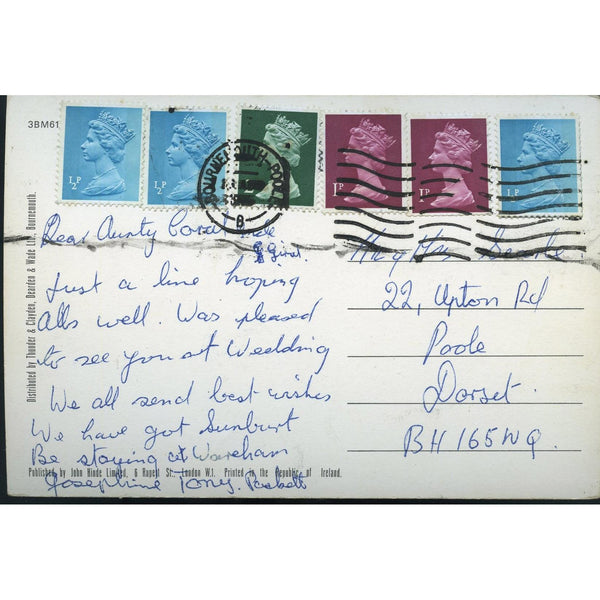 3BM61
½P
½P
1P
1P
½P
BOURNEMOUTH-POOLE
B
Dear Aunty
& girls
Just a line hoping
Alls well. Was pleased
to see you at Wedding
We all send best wishes
We have got Sunburt
Be staying at Wareham
Josephine Tony.
Mr & Mrs
22, Upton Rd
Poole
Dorset.
BH165NQ.
Distributed by Thunder & Clayden, Dearden & Wade Ltd, Bournemouth.
Published by John Hinde Limited, 6 Rupert St., London W.1. Printed in the Republic of Ireland.